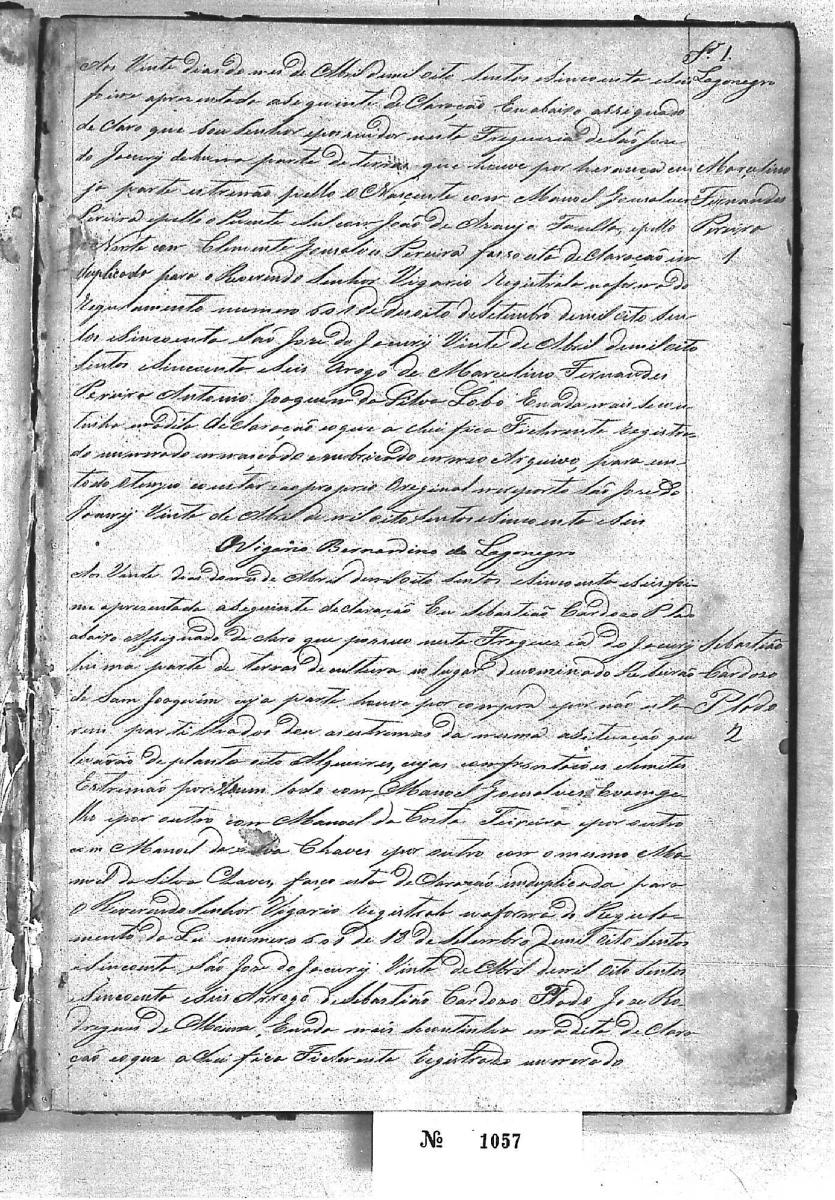 Fl. 1.
Lagonegro
Aos Vinte dias do mes de Abril de mil oito sentos e sincoenta e seis
foi me aprezentada a seguinte de Claração Eu abaixo assignado
de Claro que Sou Senhor e possuidor nesta Freguezia de São Joze
do Jacury de huma parte de terras que houve por herança cu
ja parte estremão pello o Nascente com Manoel Gonsalves
Pereira e pello o Poente e Sul com João de Araujo Paullo, e pello
Norte com Clemente Gonsalves Pereira fasso esta de Claração em
duplicado para o Reverendo Senhor Vigario Registrala na forma do
Regulamento numero 601 de desoito de Setembro de mil oito sen
tos e sincoenta São Joze do Jacury Vinte de Abril de mil oito
sentos e sincoenta e seis Arogo de Marcelino Fernandes
Pereira Antonio Joaquim da Silva Lobo E nada mais se con
tinha em dita de Claração e o que a Chei fica Fielmente registra
do numerado e rubricado em meo Arquivo, para em
todo o tempo constar e ao proprio Original me reporto São Joze do
Jacury Vinte de Abril de mil oito sentos e sincoenta e seis
O Vigario Bernardino de Lagonegro
Marcelino
Fernandes
Pereira
1
Aos Vinte dias do mes de Abril de mil oito sentos e sincoenta e seis foi
me aprezentada a seguinte de claração Eu Sebastião Cardozo Prado
abaixo Assignado de claro que possuo nesta Freguezia do Jacury
huma parte de terras de cultura no lugar denominado Ribeirão
de Sam Joaquim cuja parte houve por compra e por não esta
rem partilhados dou as estremas da mesma a situação que
levarão de planta oito Alqueires, cujas confrontaçoens e limites
Estremão por hum lado com Manoel Gonsalves Evange
lho e por outro com Manoel da Costa Teixeira e por outro
com Manoel da Silva Chaves e por outro com o mesmo Ma
noel da Silva Chaves, faço esta de Claração in duplicada para
O Reverendo Senhor Vigario Registrala na forma do Regula
mento da Lei numero 601 de 18 de Setembro de mil oito sentos
e sincoenta, São Joze do Jacury Vinte de Abril de mil oito sentos
e sincoenta e seis Arrogo de Sebastião Cardozo Prado, Joze Ro
drigues de Moura, E nada mais se continha em a dita de Clara
ção e o que a Chei fica Fielmente Registrado numerado
Sebastião
Cardozo
Prado
2
№ 1057